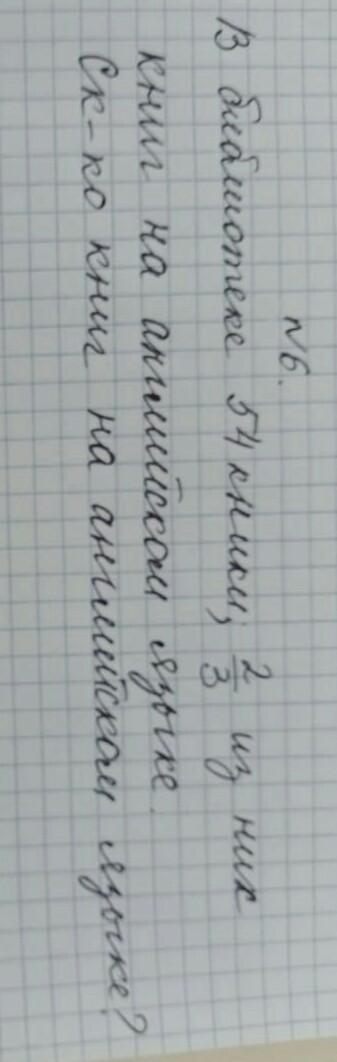 №6.
В библиотеке 54 книги; 2/3 из них
книг на английском языке.
Ск-ко книг на английском языке?